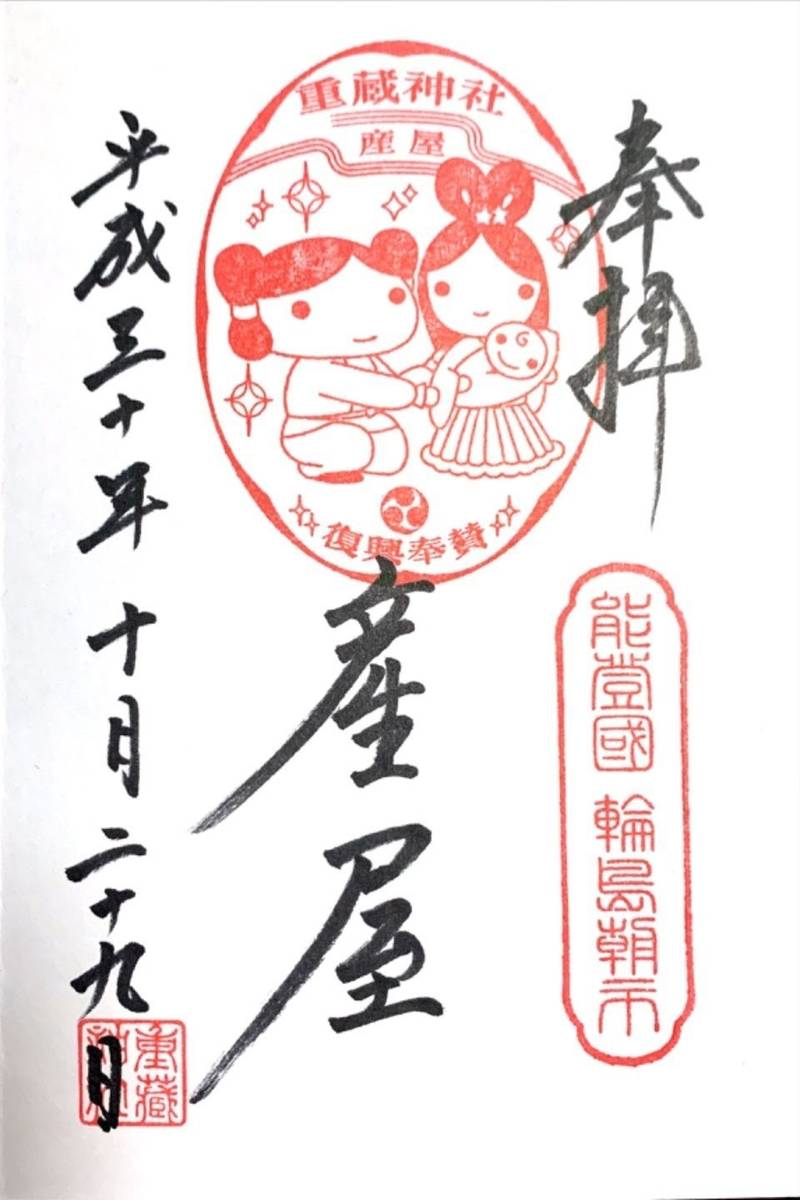 奉拝
能登國 輪島朝市
重蔵神社
産屋
復興奉賛
産屋
平成三十年十月二十九日
重藏
神社